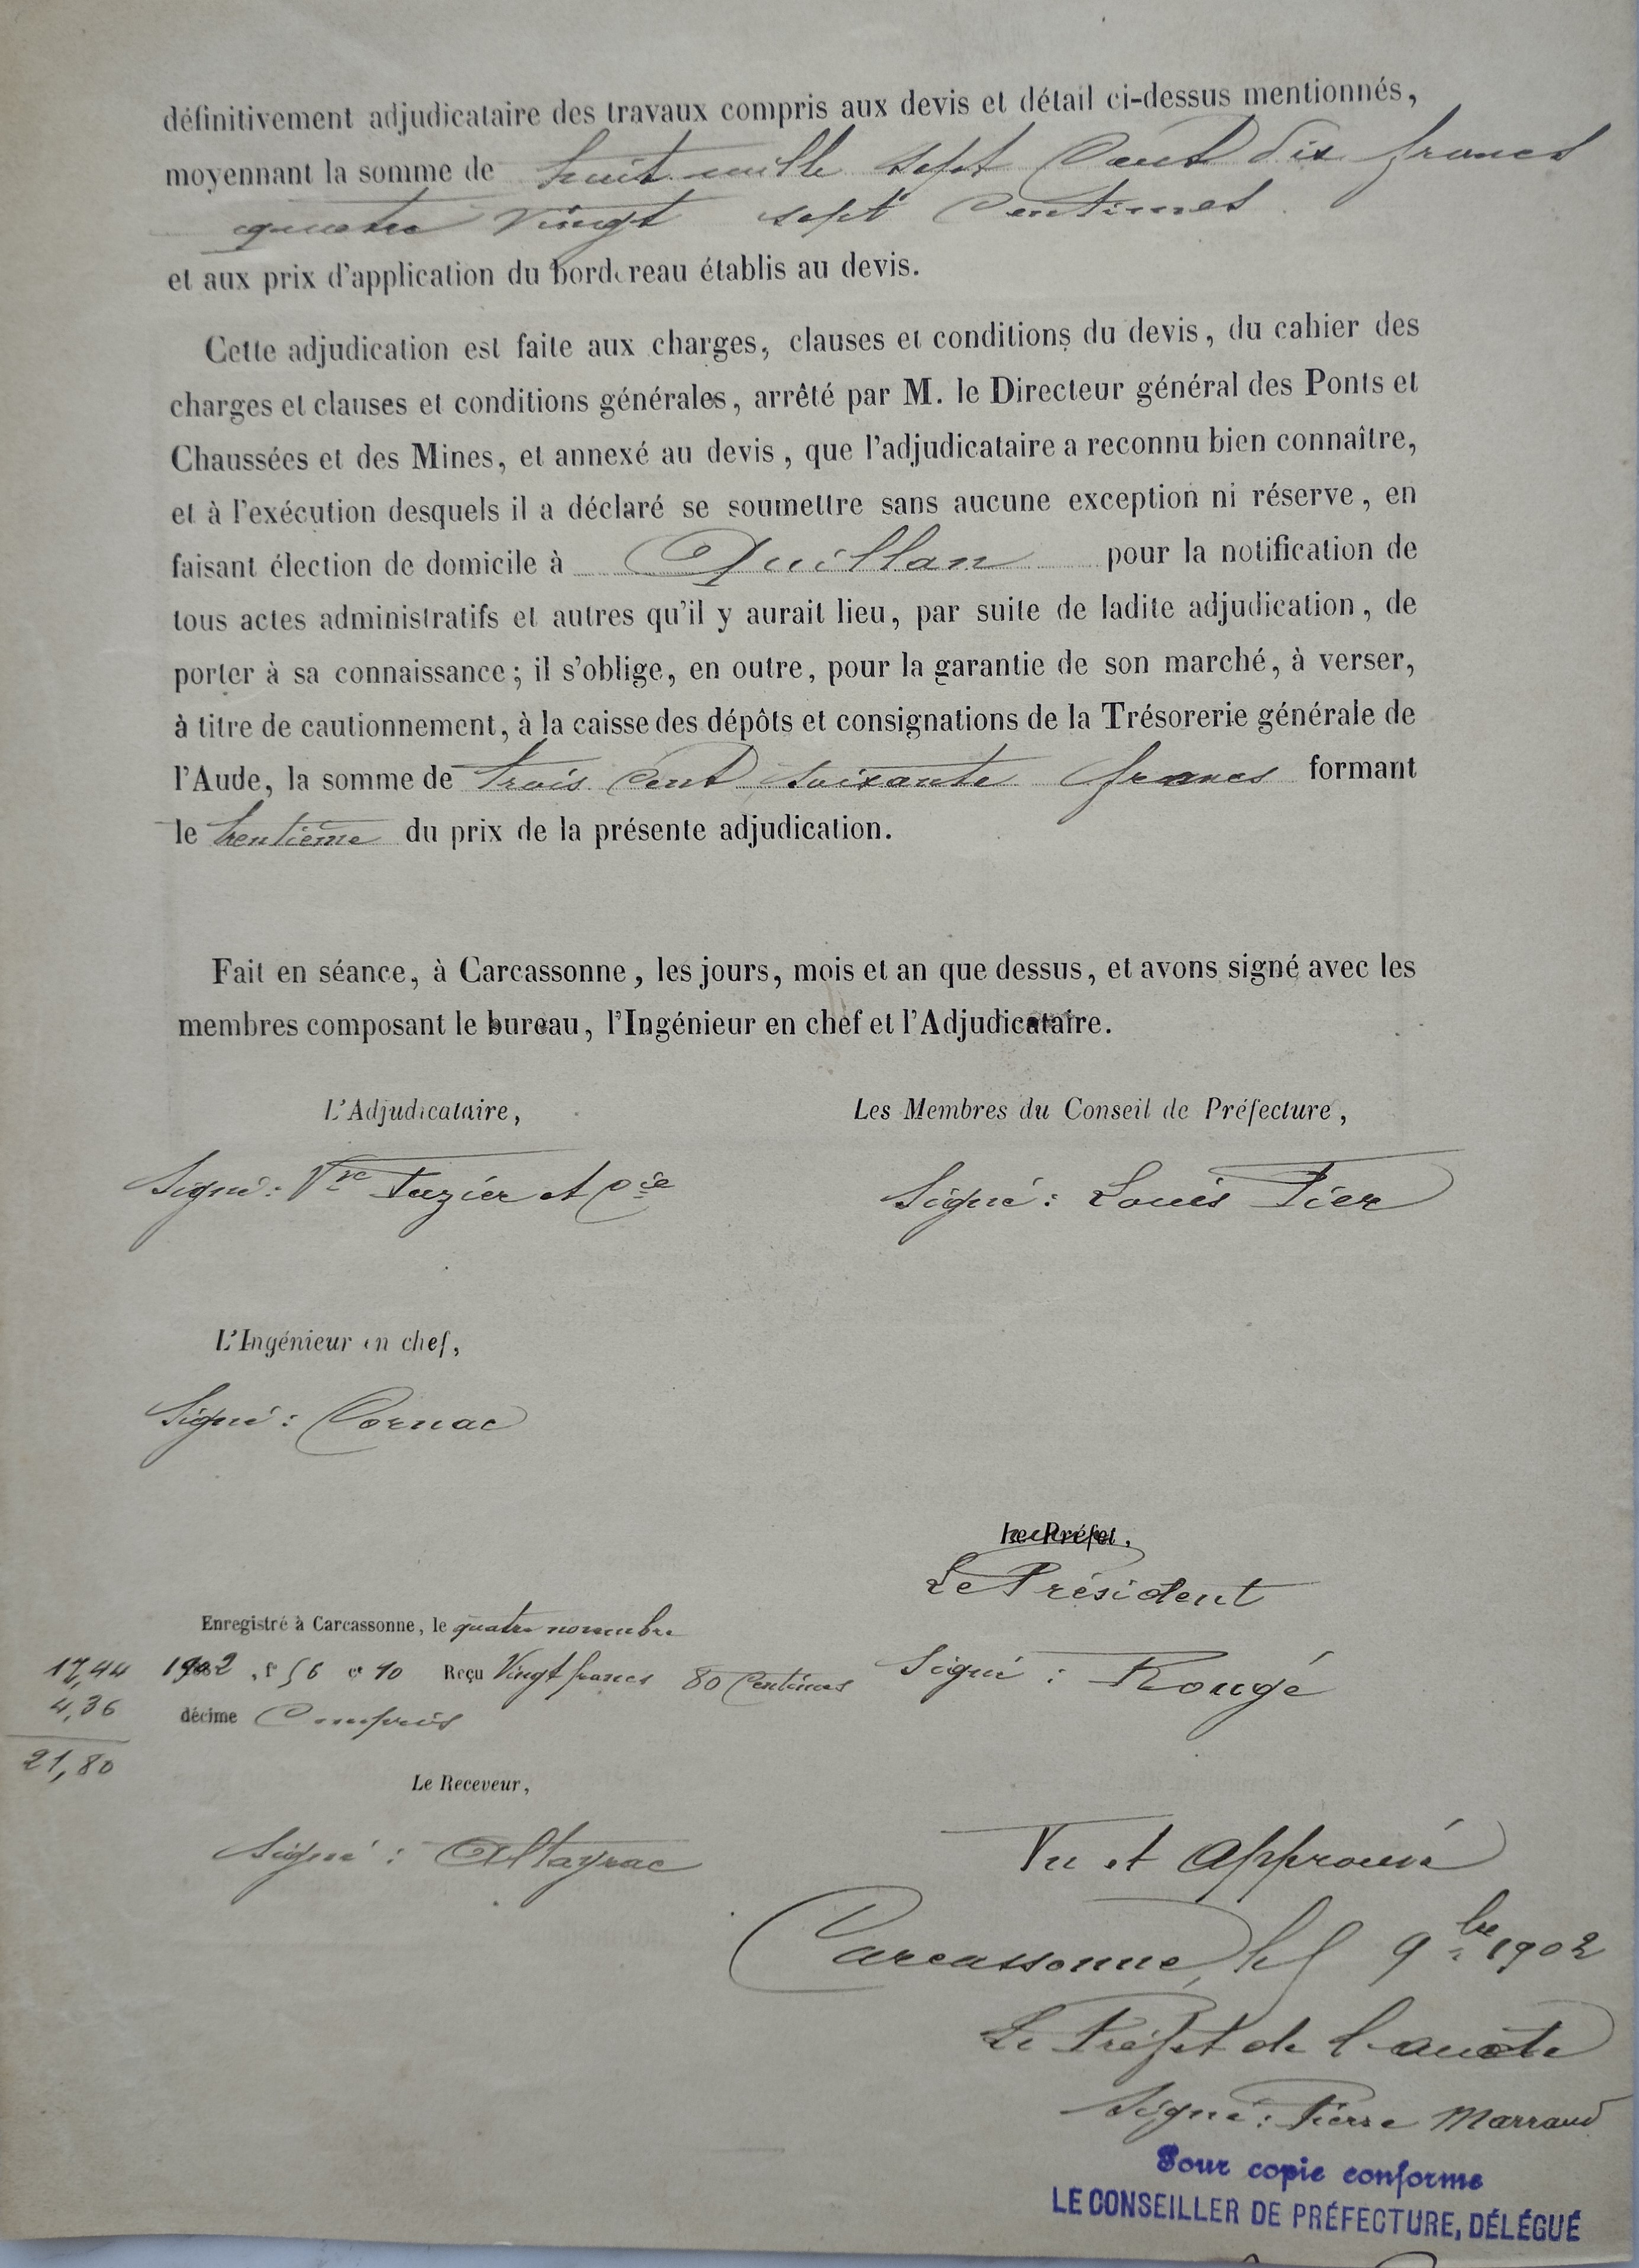 définitivement adjudicataire des travaux compris aux devis et détail ci-dessus mentionnés,
moyennant la somme de huit mille sept Cent dix francs
quatre vingt sept Centimes
et aux prix d'application du bordereau établis au devis.
Cette adjudication est faite aux charges, clauses et conditions du devis, du cahier des
charges et clauses et conditions générales, arrêté par M. le Directeur général des Ponts et
Chaussées et des Mines, et annexé au devis, que l'adjudicataire a reconnu bien connaître,
et à l'exécution desquels il a déclaré se soumettre sans aucune exception ni réserve, en
faisant élection de domicile à Quillan pour la notification de
tous actes administratifs et autres qu'il y aurait lieu, par suite de ladite adjudication, de
porter à sa connaissance; il s'oblige, en outre, pour la garantie de son marché, à verser,
à titre de cautionnement, à la caisse des dépôts et consignations de la Trésorerie générale de
l'Aude, la somme de trois Cent soixante francs formant
le trentième du prix de la présente adjudication.
Fait en séance, à Carcassonne, les jours, mois et an que dessus, et avons signé avec les
membres composant le bureau, l'Ingénieur en chef et l'Adjudicataire.
L'Adjudicataire,
Signé: Vve Tuzier et Cie
Les Membres du Conseil de Préfecture,
Signé: Louis Fier
L'Ingénieur en chef,
Signé: Cornac
Le Préfet,
Le Président
Signé: Rougé
Enregistré à Carcassonne, le quatre novembre
17,44 1902, f° 56 c 10 Reçu Vingt francs 80 Centimes
4,36 décime Compris
21,80
Le Receveur,
Signé: Altayrac
Vu et approuvé
Carcassonne, le 5 9bre 1902
Le Préfet de l'aude
Signé: Pierre Marraud
Pour copie conforme
LE CONSEILLER DE PRÉFECTURE, DÉLÉGUÉ